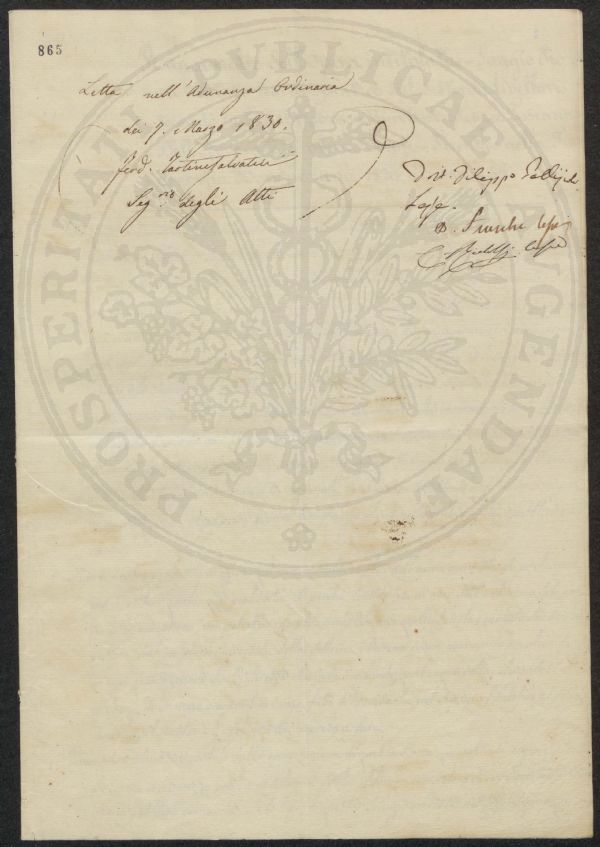 865
Letta nell'Adunanza Ordinaria
dei 7. Marzo 1830.
Ferd. Tartini Salvatici
Seg.rio degli Atti
Dott. Filippo Gallizioli
PROSPERITATI PVBLICAE AVGENDAE